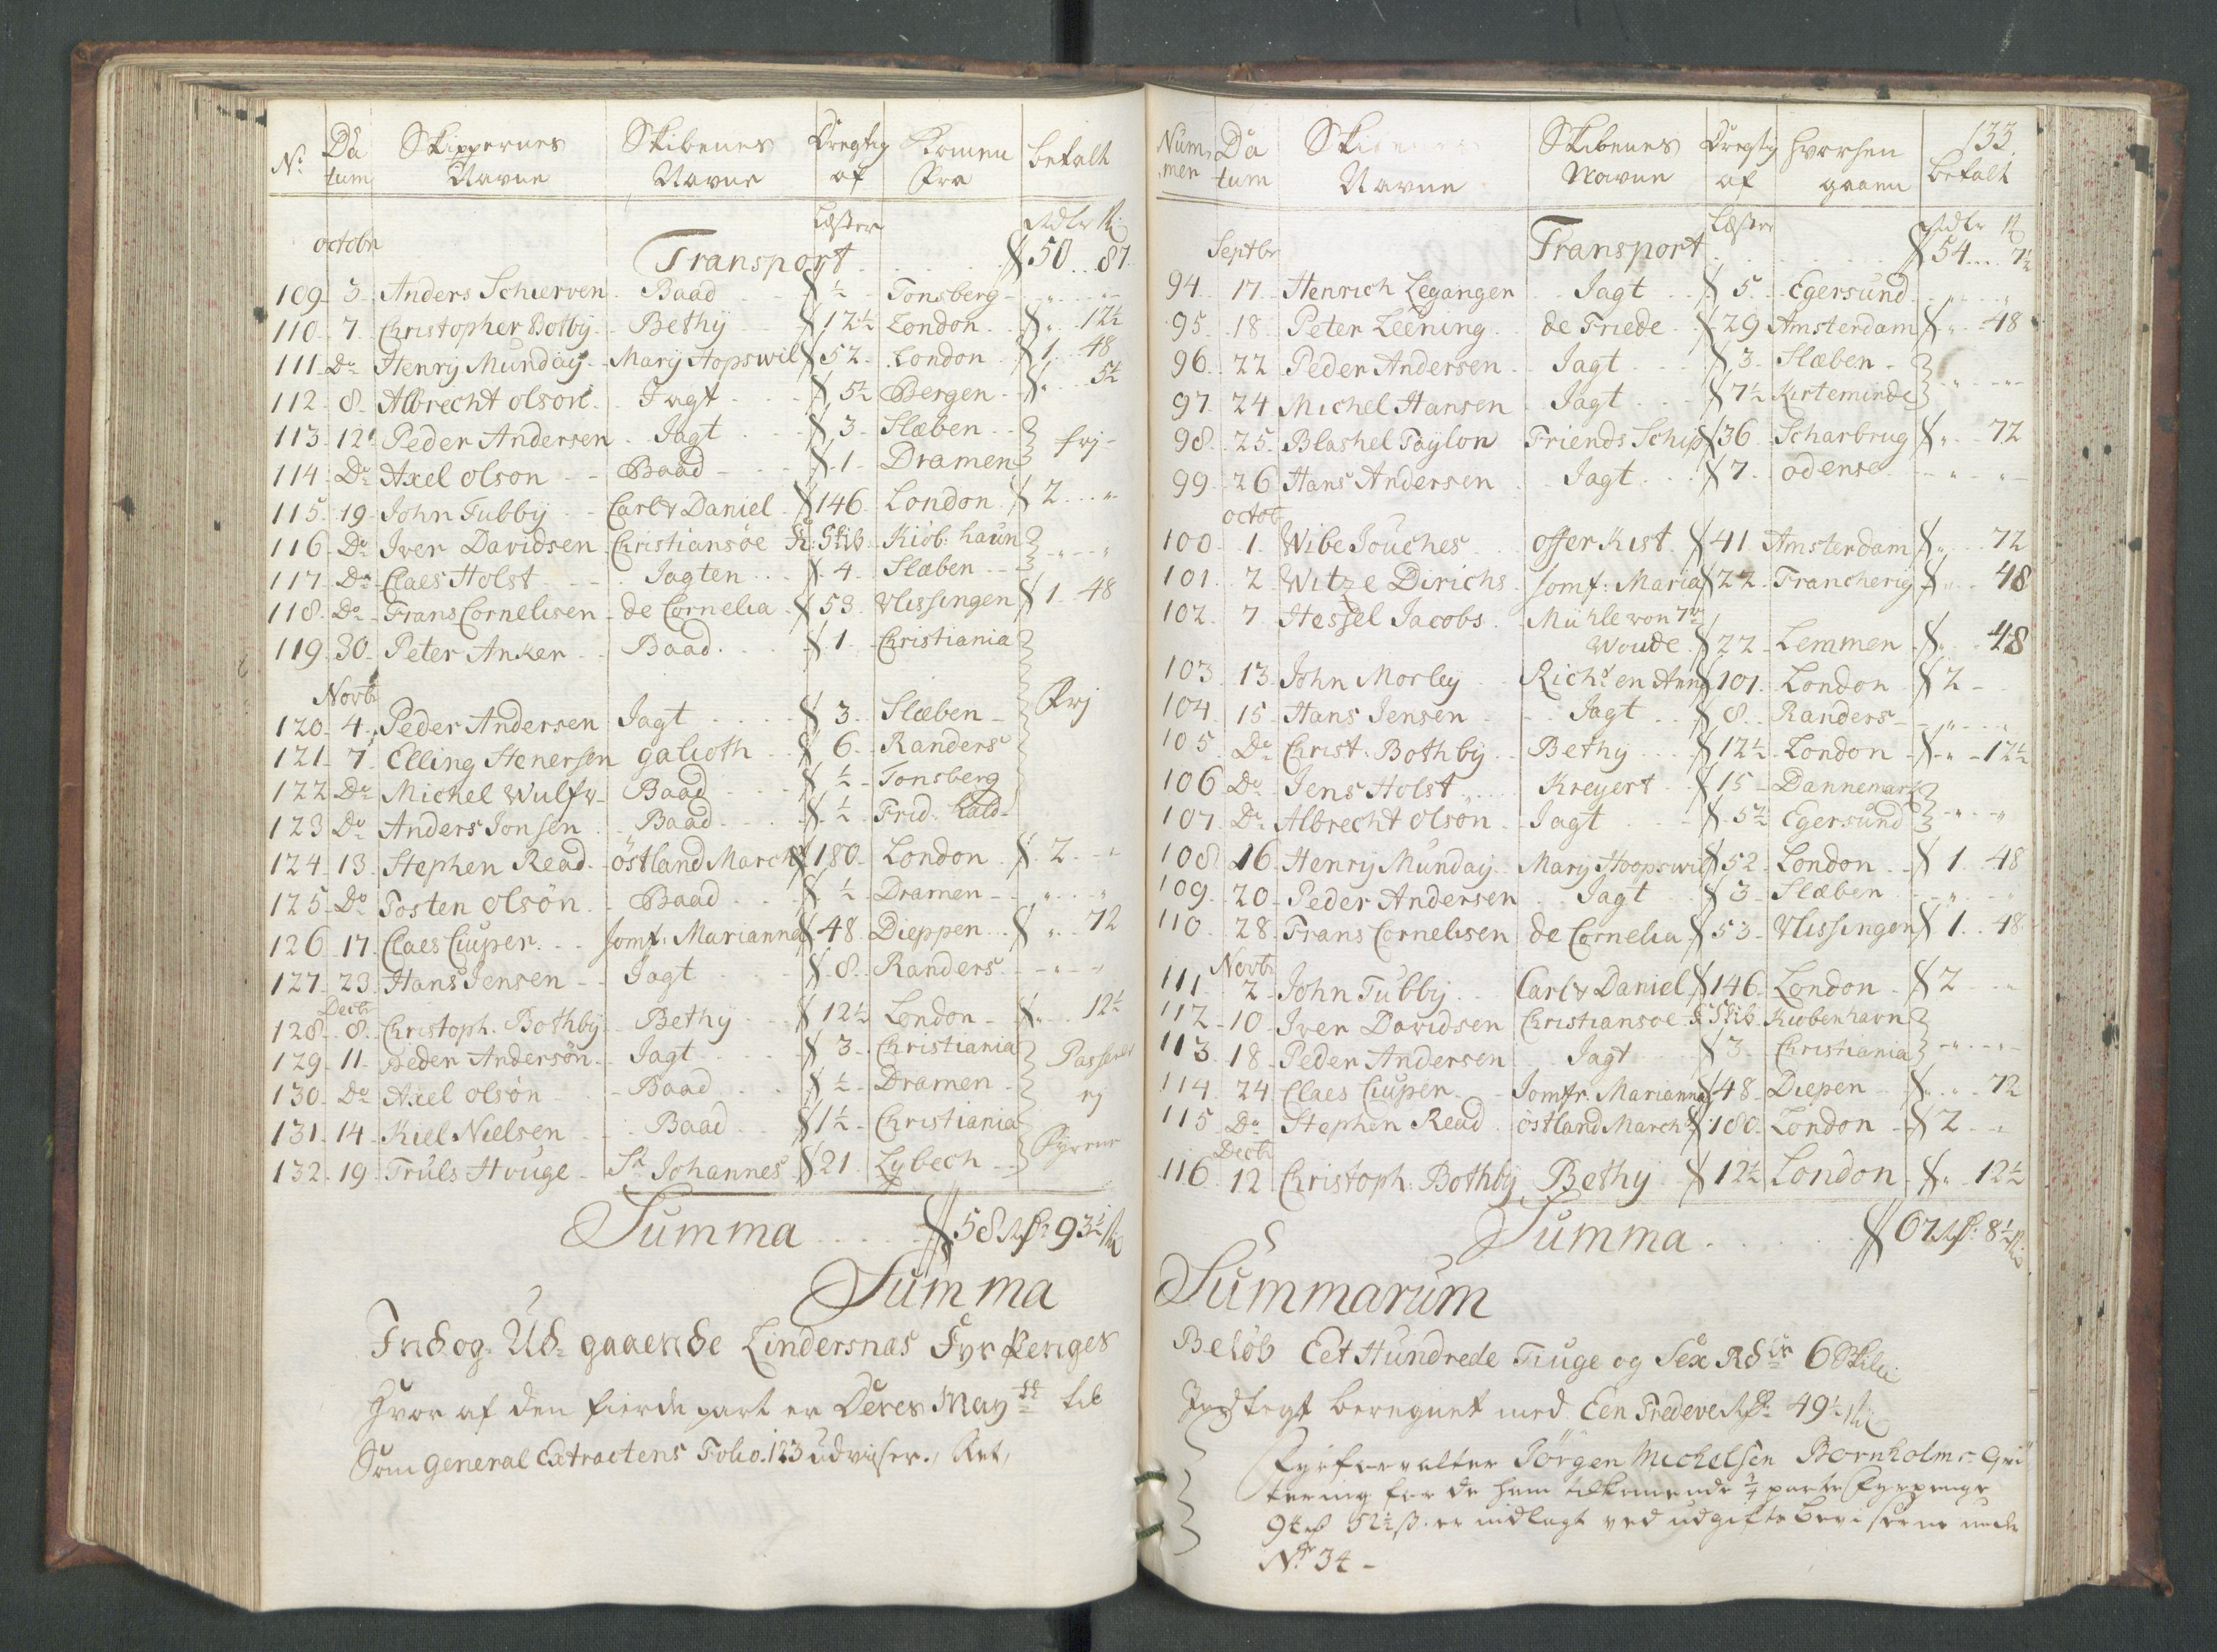 No Da tum Skippernes Navne Skibenes Navne Dregtig af Kommen Fra betalt
Læster Rdlr ß
octobr Transport 50 87
109 3 Anders Schierven Baad ½ Tonsberg
110 7 Christopher Botby Bethy 12½ London 12½
111 Do Henry Munday Mary Hopswil 52 London 1 48
112 8 Albrecht olson Jagt 5½ Bergen 5½
113 12 Peder Andersen Jagt 3 Slæben
114 Do Axel olson Baad 1 Dramen frj
115 19 John Tubby Carl & Daniel 146 London 2
116 Do Iver Davidsen Christiansøe K: Skib Kiøb: haun
117 Do Claes Holst Jagten 4 Slæben
118 Do Frans Cornelisen de Cornelia 53 Vlissingen 1 48
119 30 Peter Anker Baad 1 Christiania
Novbr
120 4 Peder Andersen Jagt 3 Slæben Frj
121 7 Elling Stenersen galioth 6 Randers
122 Do Michel Wulfv Baad ½ Tonsberg
123 Do Anders Jonsen Baad ½ Frid: hald
124 13 Stephen Read östland March 180 London 2
125 Do Tosten olsön Baad ½ Dramen
126 17 Claes Cuper Jomf: Marianna 48 Dieppen 72
127 23 Hans Jensen Jagt 8 Randers
Decbr
128 8 Christoph. Bothby Bethy 12½ London 12½
129 11 Peder Andersön Jagt 3 Christiania
130 Do Axel olsön Baad ½ Dramen
131 14 Kiel Nielsen Baad 1½ Christiania
132 19 Truls Houge St Johannes 21 Lybech
Summa 58 Rdr 93½ ß
Summa
Ind og Ud gaaende Lindersnas Fyr Penger
Hvor af den fierde part er Deres Maytt til
Som General Extractens Folio. 123 udviser.
133
Num mer Da tum Navne Skibenes Navne Dregtig af hvorhen gaaen betalt
Læster Rdlr ß
Septbr Transport 54 7½
94 17 Henrich Legangen Jagt 5 Egersund
95 18 Peter Leening de Friede 29 Amsterdam 48
96 22 Peder Andersen Jagt 3 Slæben
97 24 Michel Hansen Jagt 7½ Kirteminde
98 25 Blashel Taylon Friends Schip 36 Scharbrug 72
99 26 Hans Andersen Jagt 7 odense
octob
100 1 Wibe Jouches offer Kist 41 Amsterdam 72
101 2 Witze Dirichs Jomf: Maria 22 Francherig 48
102 7 Hessel Jacobs Mühle von 7
Woude 22 Lemmen 48
103 13 John Morley Richd en Ann 101 London 2
104 15 Hans Jensen Jagt 8 Randers
105 Do Christ: Bothby Bethy 12½ London 12½
106 Do Jens Holst Kreyert 15 Dannemark
107 Do Albrecht olson Jagt 5½ Egersund
108 16 Henry Munday Mary Hoopswil 52 London 1 48
109 20 Peder Andersen Jagt 3 Slæben
110 28 Frans Cornelisen de Cornelia 53 Vlissingen 1 48
Novbr
111 2 John Tubby Carl & Daniel 146 London 2
112 10 Iver Davidsen Christiansoe K: Skib Kiøbenhavn
113 18 Peder Andersen Jagt 3 Christiania
114 24 Claes Cuper Jomfr. Marianna 48 Diepen 72
115 Do Stephen Read östland March 180 London 2
Decbr
116 12 Christoph: Bothby Bethy 12½ London 12½
Summa 67 Rdr: 8½ ß
Summarum
Beløb Eet Hundrede Tiuge og Sex Rdlr 6 Skill:
beregnet med Een Tredeve Rdr 49½ ß
Fyrforvalter Jörgen Michelsen Bornholms Qvi
tering for de ham tilkommende ¾ parte Fyrpenge
94 rdr 52½ ß. er indlagt ved udgifts beviiserne under
No 34